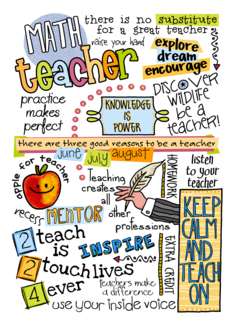 MATH
teacher
there is no substitute
for a great teacher
raise your hand
explore
dream
encourage
practice
makes
perfect
KNOWLEDGE
IS
POWER
DISCOVER
WILDLIFE
be a
teacher!
there are three good reasons to be a teacher
june july august
apple for teacher
Teaching
creates
all
other
professions
HOMEWORK
listen
to your
teacher
recess
MENTOR
2 teach
is
INSPIRE
2 touch lives
4 ever
EXTRA CREDIT
KEEP
CALM
AND
TEACH
ON
teachers make
a difference
use your inside voice